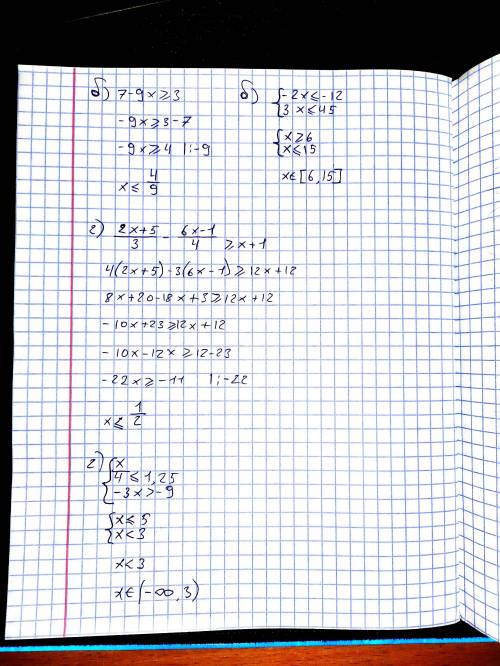 б) 7-9x≥3
-9x≥3-7
-9x≥4 |:-9
x≤ 4/9
б) {-2x≤-12
3x≤45
{x≥6
x≤15
x∈[6,15]
г) (2x+5)/3 - (6x-1)/4 ≥x+1
4(2x+5)-3(6x-1)≥12x+12
8x+20-18x+3≥12x+12
-10x+23≥12x+12
-10x-12x≥12-23
-22x≥-11 |:-22
x≤ 1/2
г) {x/4≤1,25
-3x>-9
{x≤5
x<3
x<3
x∈(-∞,3)